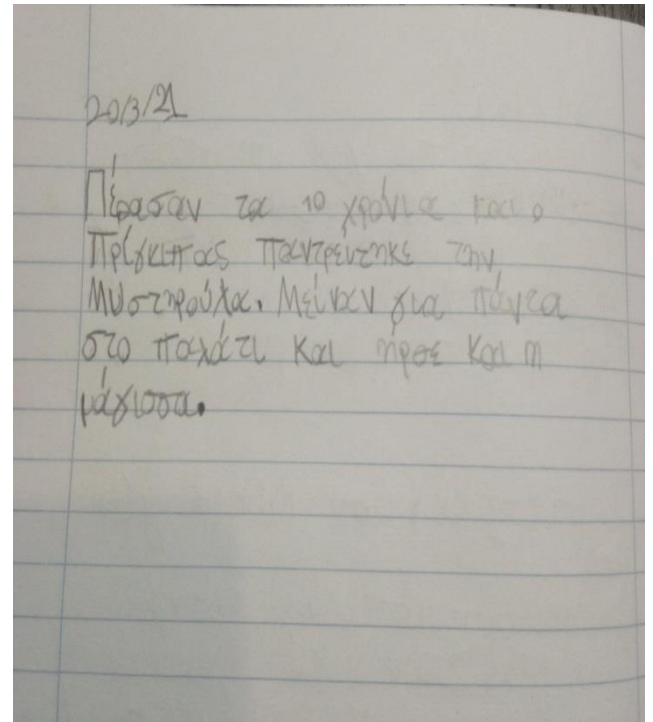 20/3/21
Πέρασαν τα 10 χρόνια και ο
Πρίγκιπας παντρεύτηκε την
Μυστηρούλα. Μείναν για πάντα
στο παλάτι και ήρθε και η
μάγισσα.